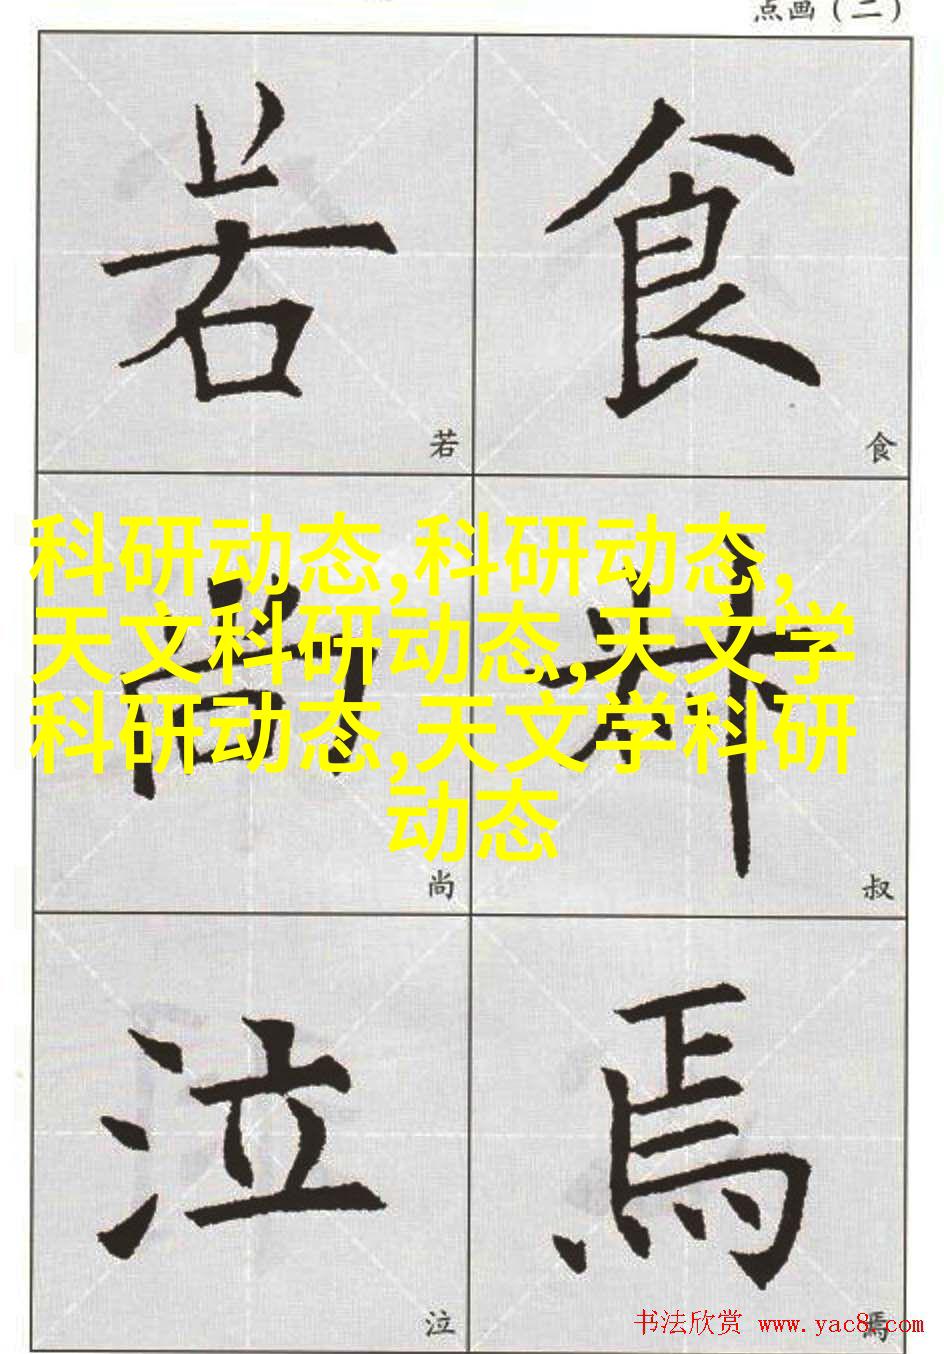 点画（二）
若 食
若 食
科研动态,科研动态,
天文科研动态,天文学
科研动态,天文学科研
动态
尚 叔
尚 叔
泣 焉
泣 焉
书法欣赏 www.yac8.com